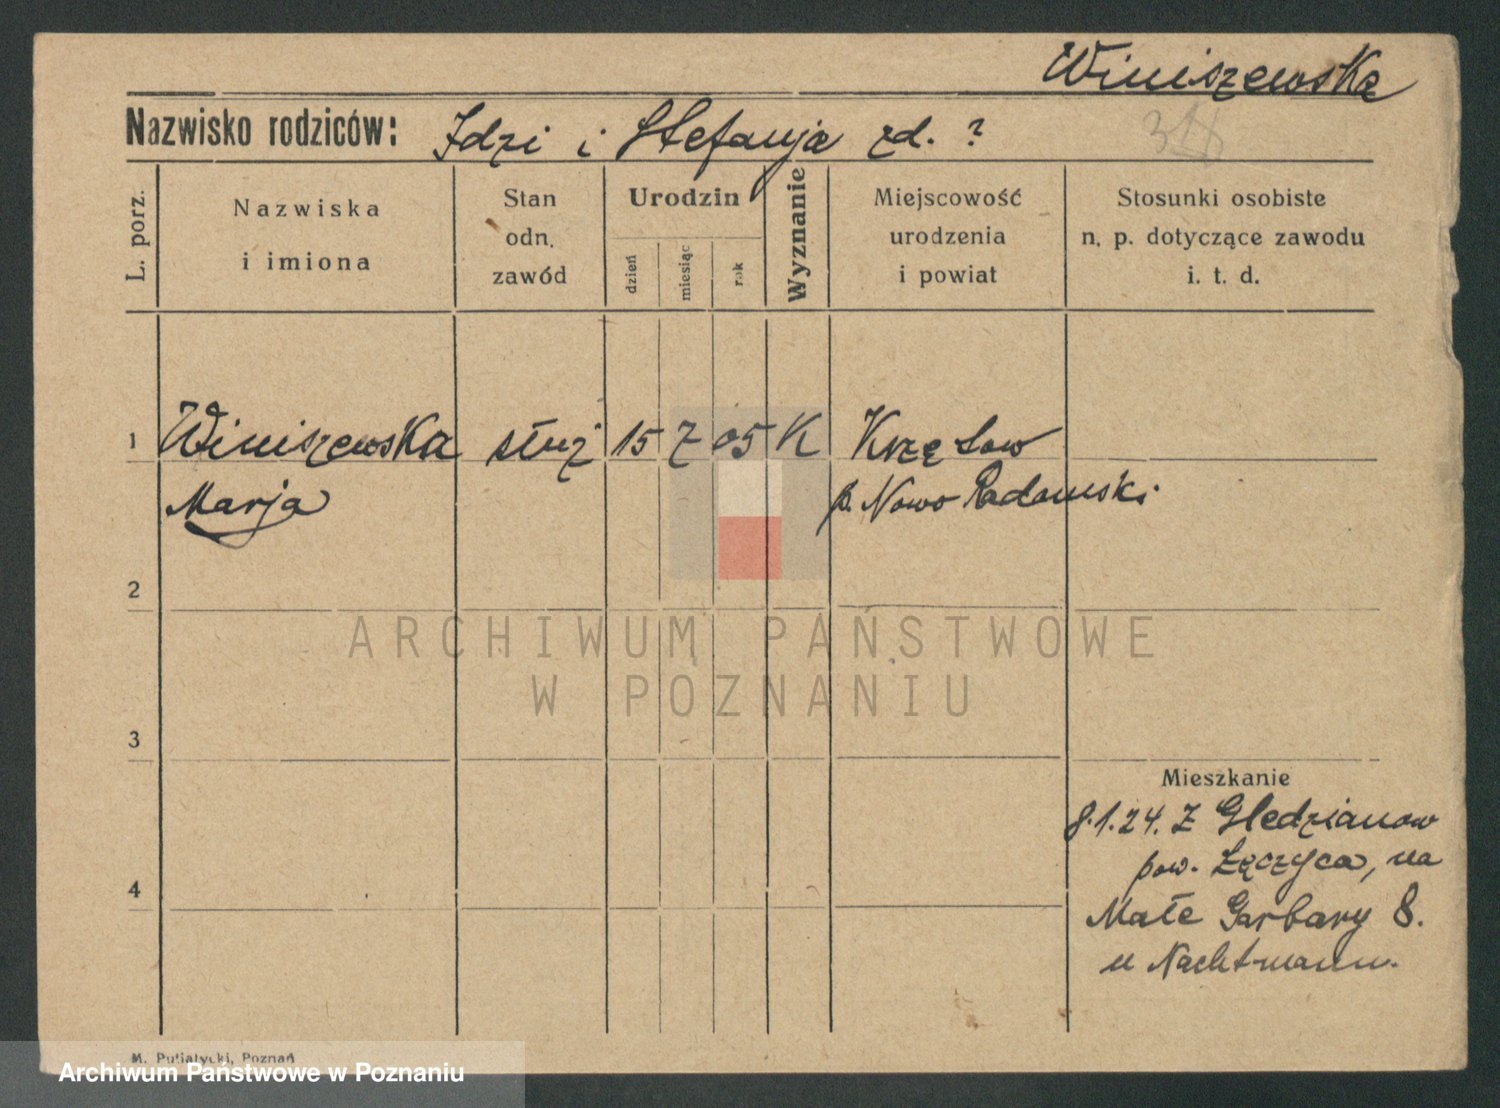 Winiszewska
Nazwisko rodziców: Idzi i Stefanja zd. ?
L. porz.
Nazwiska
i imiona
Stan
odn.
zawód
Urodzin
dzień
miesiąc
rok
Wyznanie
Miejscowość
urodzenia
i powiat
Stosunki osobiste
n. p. dotyczące zawodu
i. t. d.
1 Winiszewska służ 15 7 05 K Krzętow
Marja p. Nowo Radomski
2
3
4
Mieszkanie
8.1.24. Z Gledzianow
pow. Łęczyca, na
Małe Garbary 8.
u Nachtmann.
M. Putiatycki, Poznań
ARCHIWUM PAŃSTWOWE
W POZNANIU
Archiwum Państwowe w Poznaniu